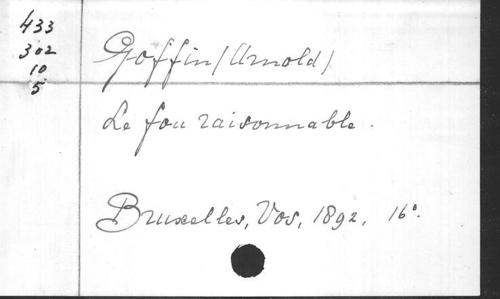 433
302
10
5
Goffin (Arnold)
Le fou raisonnable.
Bruxelles, Vos, 1892, 16°.